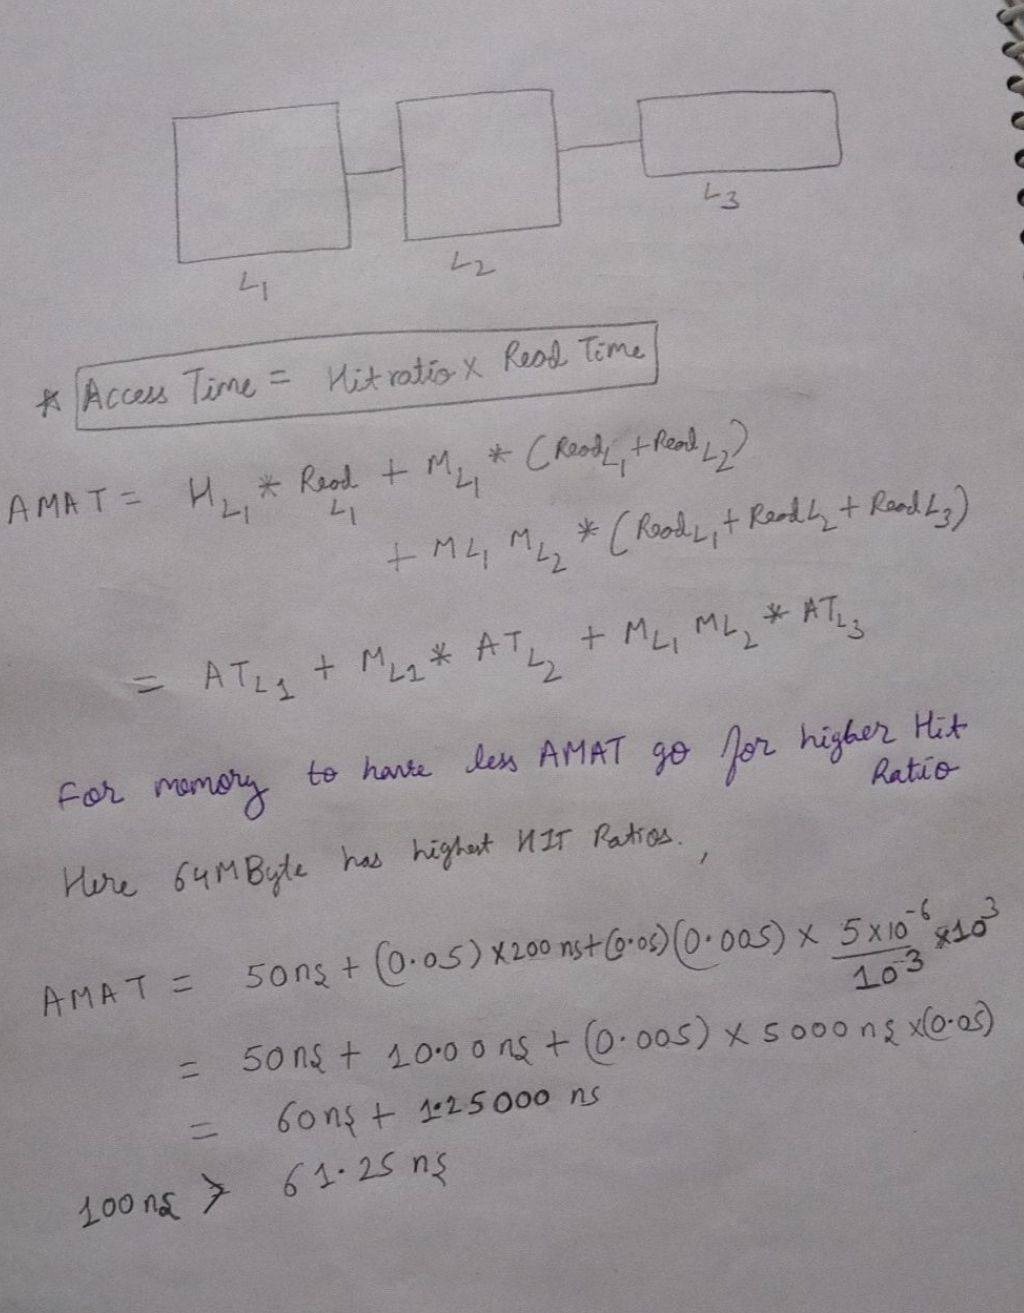 L1
L2
L3
* Access Time = Hit ratio x Read Time
AMAT = HL1 * Read L1 + ML1 * (ReadL1 + Read L2)
+ ML1 ML2 * (ReadL1 + ReadL2 + ReadL3)
= ATL1 + ML1 * ATL2 + ML1 ML2 * ATL3
For memory to have less AMAT go for higher Hit
Ratio
Here 64MByte has highest HIT Ratios.,
AMAT = 50ns + (0.05) x 200 ns + (0.05) (0.005) x 5x10^-6 / 10^-3 x 10^3
= 50ns + 10.00 ns + (0.005) x 5000 ns x (0.05)
= 60ns + 1.25000 ns
100ns > 61.25 ns